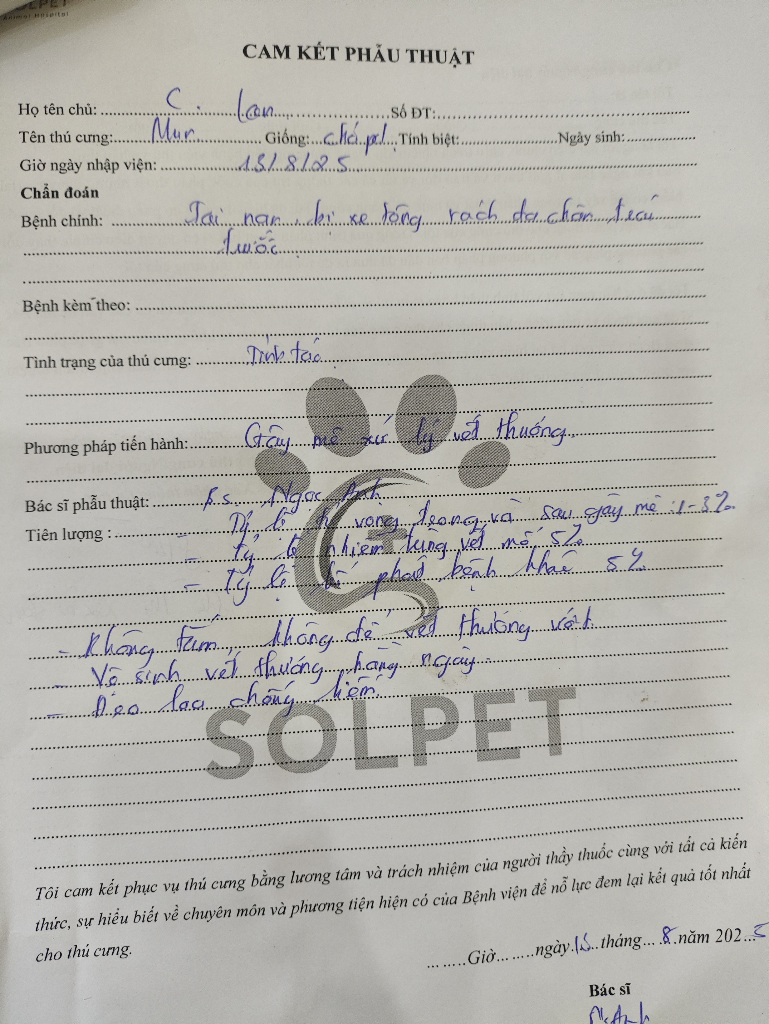 SOLPET
Animal Hospital
CAM KẾT PHẪU THUẬT
Họ tên chủ: C. Lan Số ĐT:
Tên thú cưng: Mun Giống: chó pl Tính biệt: Ngày sinh:
Giờ ngày nhập viện: 13/8/25
Chẩn đoán
Bệnh chính: Tai nạn, bị xe tông rách da chân trái
trước
Bệnh kèm theo:
Tình trạng của thú cưng: Tỉnh táo
Phương pháp tiến hành: Gây mê xử lý vết thương
Bác sĩ phẫu thuật: Bs. Ngọc Anh
Tiên lượng : - Tỷ lệ tử vong trong và sau gây mê : 1-3%
- Tỷ lệ nhiễm trùng vết mổ 5%
- Tỷ lệ phát bệnh khác 5%
- Không tắm, không để vết thương ướt
- Vệ sinh vết thương hằng ngày
- Đeo loa chống liếm
SOLPET
Tôi cam kết phục vụ thú cưng bằng lương tâm và trách nhiệm của người thầy thuốc cùng với tất cả kiến
thức, sự hiểu biết về chuyên môn và phương tiện hiện có của Bệnh viện để nỗ lực đem lại kết quả tốt nhất
cho thú cưng.
Giờ ngày 13 tháng 8 năm 2025
Bác sĩ